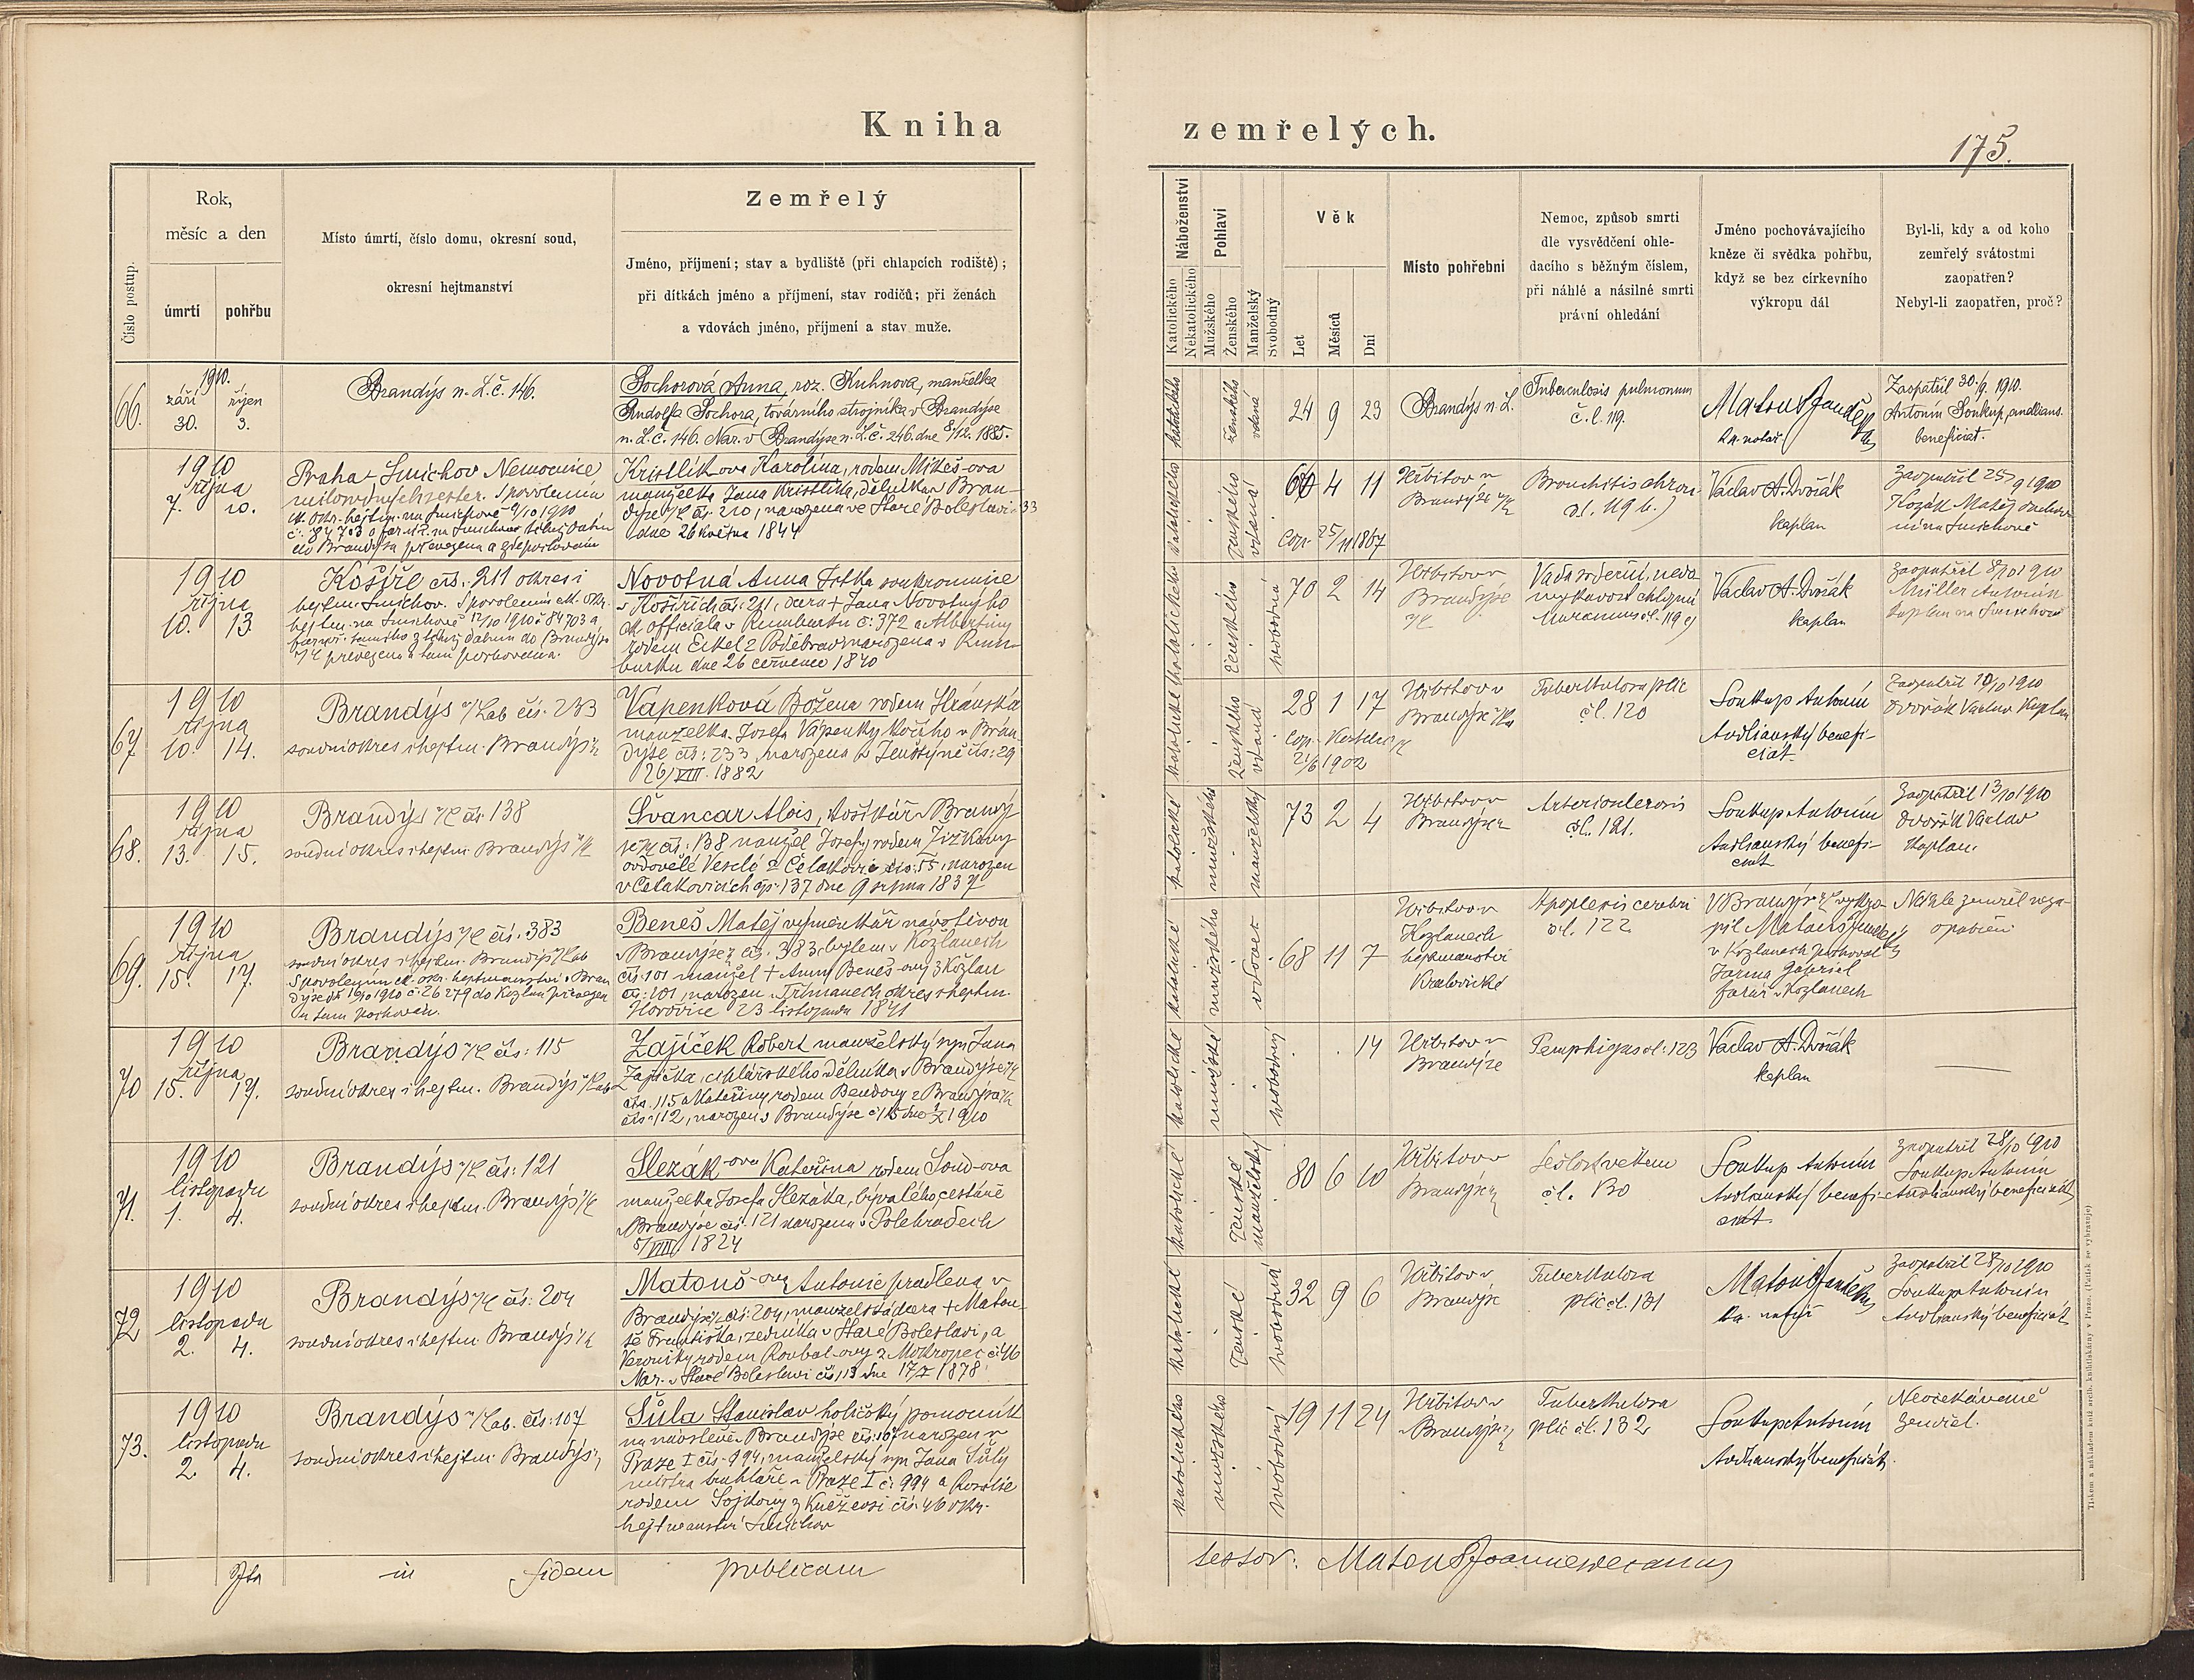 Kniha
zemřelých.
175.
Číslo postup.
Rok,
měsíc a den
úmrtí
pohřbu
Místo úmrtí, číslo domu, okresní soud,
okresní hejtmanství
Zemřelý
Jméno, příjmení; stav a bydliště (při chlapcích rodiště);
při dítkách jméno a příjmení, stav rodičů; při ženách
a vdovách jméno, příjmení a stav muže.
Náboženství
Katolického
Nekatolického
Pohlaví
Mužského
Ženského
Manželský
Svobodný
Věk
Let
Měsíců
Dní
Místo pohřební
Nemoc, způsob smrti
dle vysvědčení ohle-
dacího s běžným číslem,
při náhlé a násilné smrti
právní ohledání
Jméno pochovávajícího
kněze či svědka pohřbu,
když se bez církevního
výkropu dál
Byl-li, kdy a od koho
zemřelý svátostmi
zaopatřen?
Nebyl-li zaopatřen, proč?
66.
1910.
září říjen
30. 3.
Brandýs n. L. č. 146.
Sochorová Anna, roz. Kuhnova, manželka
Rudolfa Sochora, továrního strojníka v Brandýse
n. L. č. 146. Nar. v Brandýse n. L. č. 246. dne 8/12. 1885.
katolického
ženského
vdaná
24 9 23
Brandýs n. L.
Tuberculosis pulmonum
č. l. 119.
Zaopatřil 30./9. 1910.
Antonín Soukup, andlians.
beneficiat.
1910
října
7. 10.
Praha - Smíchov Nemocnice
do Brandýsa převezena a zde pochována
Kristlíkova Karolina, rodem Mikeš-ova
manželka Jana Kristlíka, dělníka v Bran-
dýse n/L čís. 210, narozena ve Staré Boleslavi 33
dne 26 května 1844
katolického
ženského
vdaná
4 11
cop. 25/11 1867
Hřbitov v
Brandýse n/L
Bronchitis chron.
čl. 119 b.)
Václav A. Dvořák
kaplan
Zaopatřil 25/9 1910
Kozák Matěj
na Smíchově
1910
října
10. 13
Košíře čís. 211 okres i
hejtm. Smíchov. S povolením ck. okr.
hejtm. na Smíchově 12/10 1910 č. 84703 a
n/L převezena a tam pochována.
Novotná Anna Frtka soukromnice
v Košířích čís. 211, dcera + Jana Novotného
ck officiala v Rumburku č. 372 a Albertiny
rodem Eckel z Poděbrad narozena v Rum-
burku dne 26 července 1840
katolického
ženského
svobodná
70 2 14
Hřbitov v
Brandýse
n/L
Vada srdeční, nedo-
mykavost chlopní
Marasmus čl. 119 c)
Václav A. Dvořák
kaplan
Zaopatřil 8/10 1910
Müller Antonín
kaplan na Smíchově
67
1910
října
10. 14.
Brandýs n/Lab čís. 233
soudní okres i hejtm. Brandýs n/L
Vápenková Božena rodem Hránská
manželka Josefa Vápenky kočího v Bran-
dýse čís. 233, narozena v Zenštýně čís. 29
26/VIII. 1882
katolické
ženského
vdaná
28 1 17
cop.
21/6 1902
Hřbitov v
Brandýse n/L
Tuberkulosa plic
čl. 120
Soukup Antonín
Andlianský benefi-
ciat.
Zaopatřil 10/10 1910
Dvořák Václav kaplan
68.
1910
října
13. 15.
Brandýs n/L čís. 138
soudní okres i hejtm. Brandýs n/L
Švancar Alois, košíkář v Brandý-
se n/L čís. 138 manžel Josefy rodem Žižkovy
ovdovělé Veselé z Čelakovic čís. 55, narozen
v Čelakovicích čp. 137 dne 9 srpna 1837
katolické
mužského
manželský
73 2 4
Hřbitov v
Brandýse
Arteriosclerosis
čl. 121.
Soukup Antonín
Andlianský benefi-
ciat
Zaopatřil 13/10 1910
Dvořák Václav
kaplan.
69.
1910
října
15. 17.
Brandýs n/L čís. 383
soudní okres i hejtm. Brandýs n/Lab
S povolením ck. okr. hejtmanství v Bran-
dýse č. 26279 do Kožlan převezen
a tam pochován.
Beneš Matěj výměnkář na návštěvě
v Brandýse čís. 383, bytem v Kožlanech
čís. 101 manžel + Anny Beneš-ovy z Kožlan
čís. 101, narozen v Třímanech okres i hejtm.
Hořovice 23 listopadu 1841
katolické
mužského
vdovec
68 11 7
Hřbitov v
Kozlanech
hejtmanství
Kralovické
Apoplexis cerebri
čl. 122
V Brandýse n/L vykro-
pil Matouš
v Kozlanech pochoval
Jarma Gabriel
farář v Kozlanech
Náhle zemřel neza-
opatřen
70
1910
října
15. 17.
Brandýs n/L čís. 115
soudní okres i hejtm. Brandýs n/Lab
Zajíček Robert manželský syn Jana
Zajíčka, cihlářského dělníka v Brandýse n/L
čís. 115 a Kateřiny rodem Bendovy z Brandýsa n/L
čís. 112, narozen v Brandýse č. 115 dne 1/X 1910
katolické
mužské
svobodný
14
Hřbitov v
Brandýse
Pemphigus čl. 123
Václav A. Dvořák
kaplan
71.
1910
listopadu
1. 4.
Brandýs n/L čís. 121
soudní okres i hejtm. Brandýs n/L
Slezák-ova Kateřina rodem Soud-ova
manželka Josefa Slezáka, bývalého cestáře
v Brandýse čís. 121 narozena v Polehradech
5/VIII. 1824
katolické
ženské
manželský
80 6 10
Hřbitov v
Brandýse
Sešlost věkem
čl. 130
Soukup Antonín
Andlianský benefi-
ciat
Zaopatřil 28/10 1910
Soukup Antonín
Andlianský beneficiát
72
1910
listopadu
2. 4.
Brandýs n/L čís. 204
soudní okres i hejtm. Brandýs n/L
Matouš-ova Antonie pradlena v
Brandýse n/L čís. 204, manželská dcera + Matou-
še Františka, zedníka v Staré Boleslavi, a
Veroniky rodem Roubal-ovy z Mokropec č. 46
Nar. v Staré Boleslavi čís. 113 dne 17/I 1878
katolické
ženské
svobodná
32 9 6
Hřbitov v
Brandýse
Tuberkulosa
plic čl. 131
Zaopatřil 28/10 1910
Soukup Antonín
Andlianský beneficiát
73.
1910
listopadu
2. 4.
Brandýs n/Lab. čís. 107
soudní okres i hejtm. Brandýs
Šůla Stanislav holičský pomocník
na návštěvě v Brandýse čís. 107 narozen v
Praze I čís. 994, manželský syn Jana Šůly
mistra truhláře v Praze I č. 994 a Rosalie
rodem Sojkovy z Kněževsi čís. 46 okr.
hejtmanství Smíchov
katolického
mužského
svobodný
19 11 24
Hřbitov v
Brandýse
Tuberkulosa
plic čl. 132
Soukup Antonín
Andlianský beneficiát.
Neočekávaně
zemřel.
Ita in fidem publicam
testor: Matouš Joannes decanus